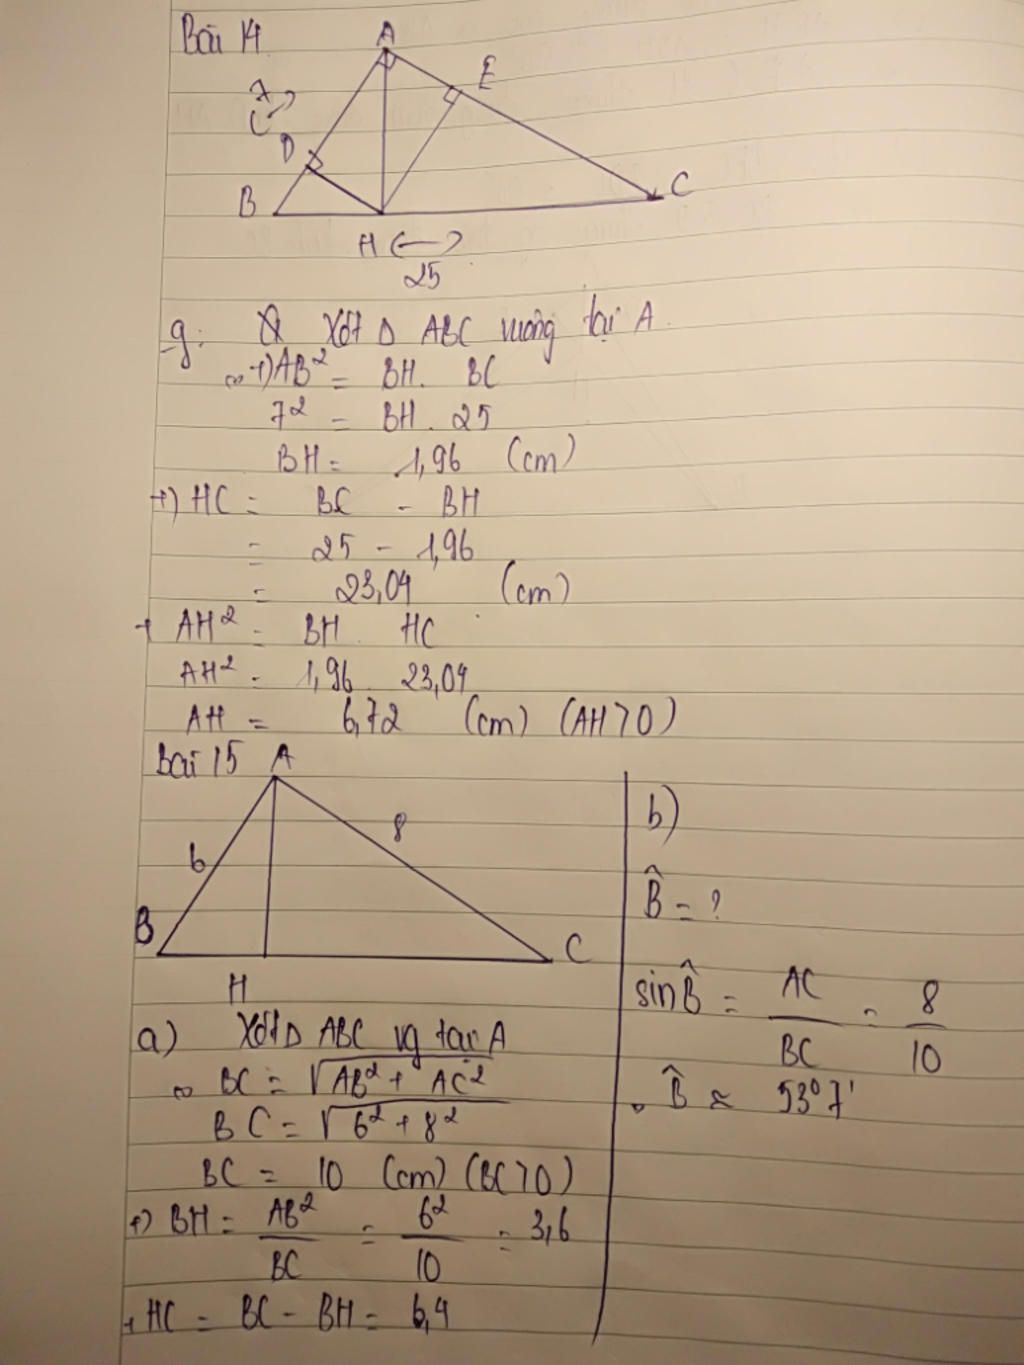 Bài 14
A
E
7
D
B
C
H
25
Xét Δ ABC vuông tại A
+) AB² = BH. BC
7² = BH . 25
BH = 1,96 (cm)
+) HC = BC - BH
= 25 - 1,96
= 23,04 (cm)
+ AH² = BH . HC
AH² = 1,96 . 23,04
AH = 6,72 (cm) (AH > 0)
Bài 15
A
6
8
B
C
H
a) Xét Δ ABC vg tại A
∞ BC = √AB² + AC²
BC = √6² + 8²
BC = 10 (cm) (BC > 0)
+) BH = AB² / BC = 6² / 10 = 3,6
+ HC = BC - BH = 6,4
b)
B̂ = ?
sin B̂ = AC / BC = 8 / 10
B̂ ≈ 53°7'